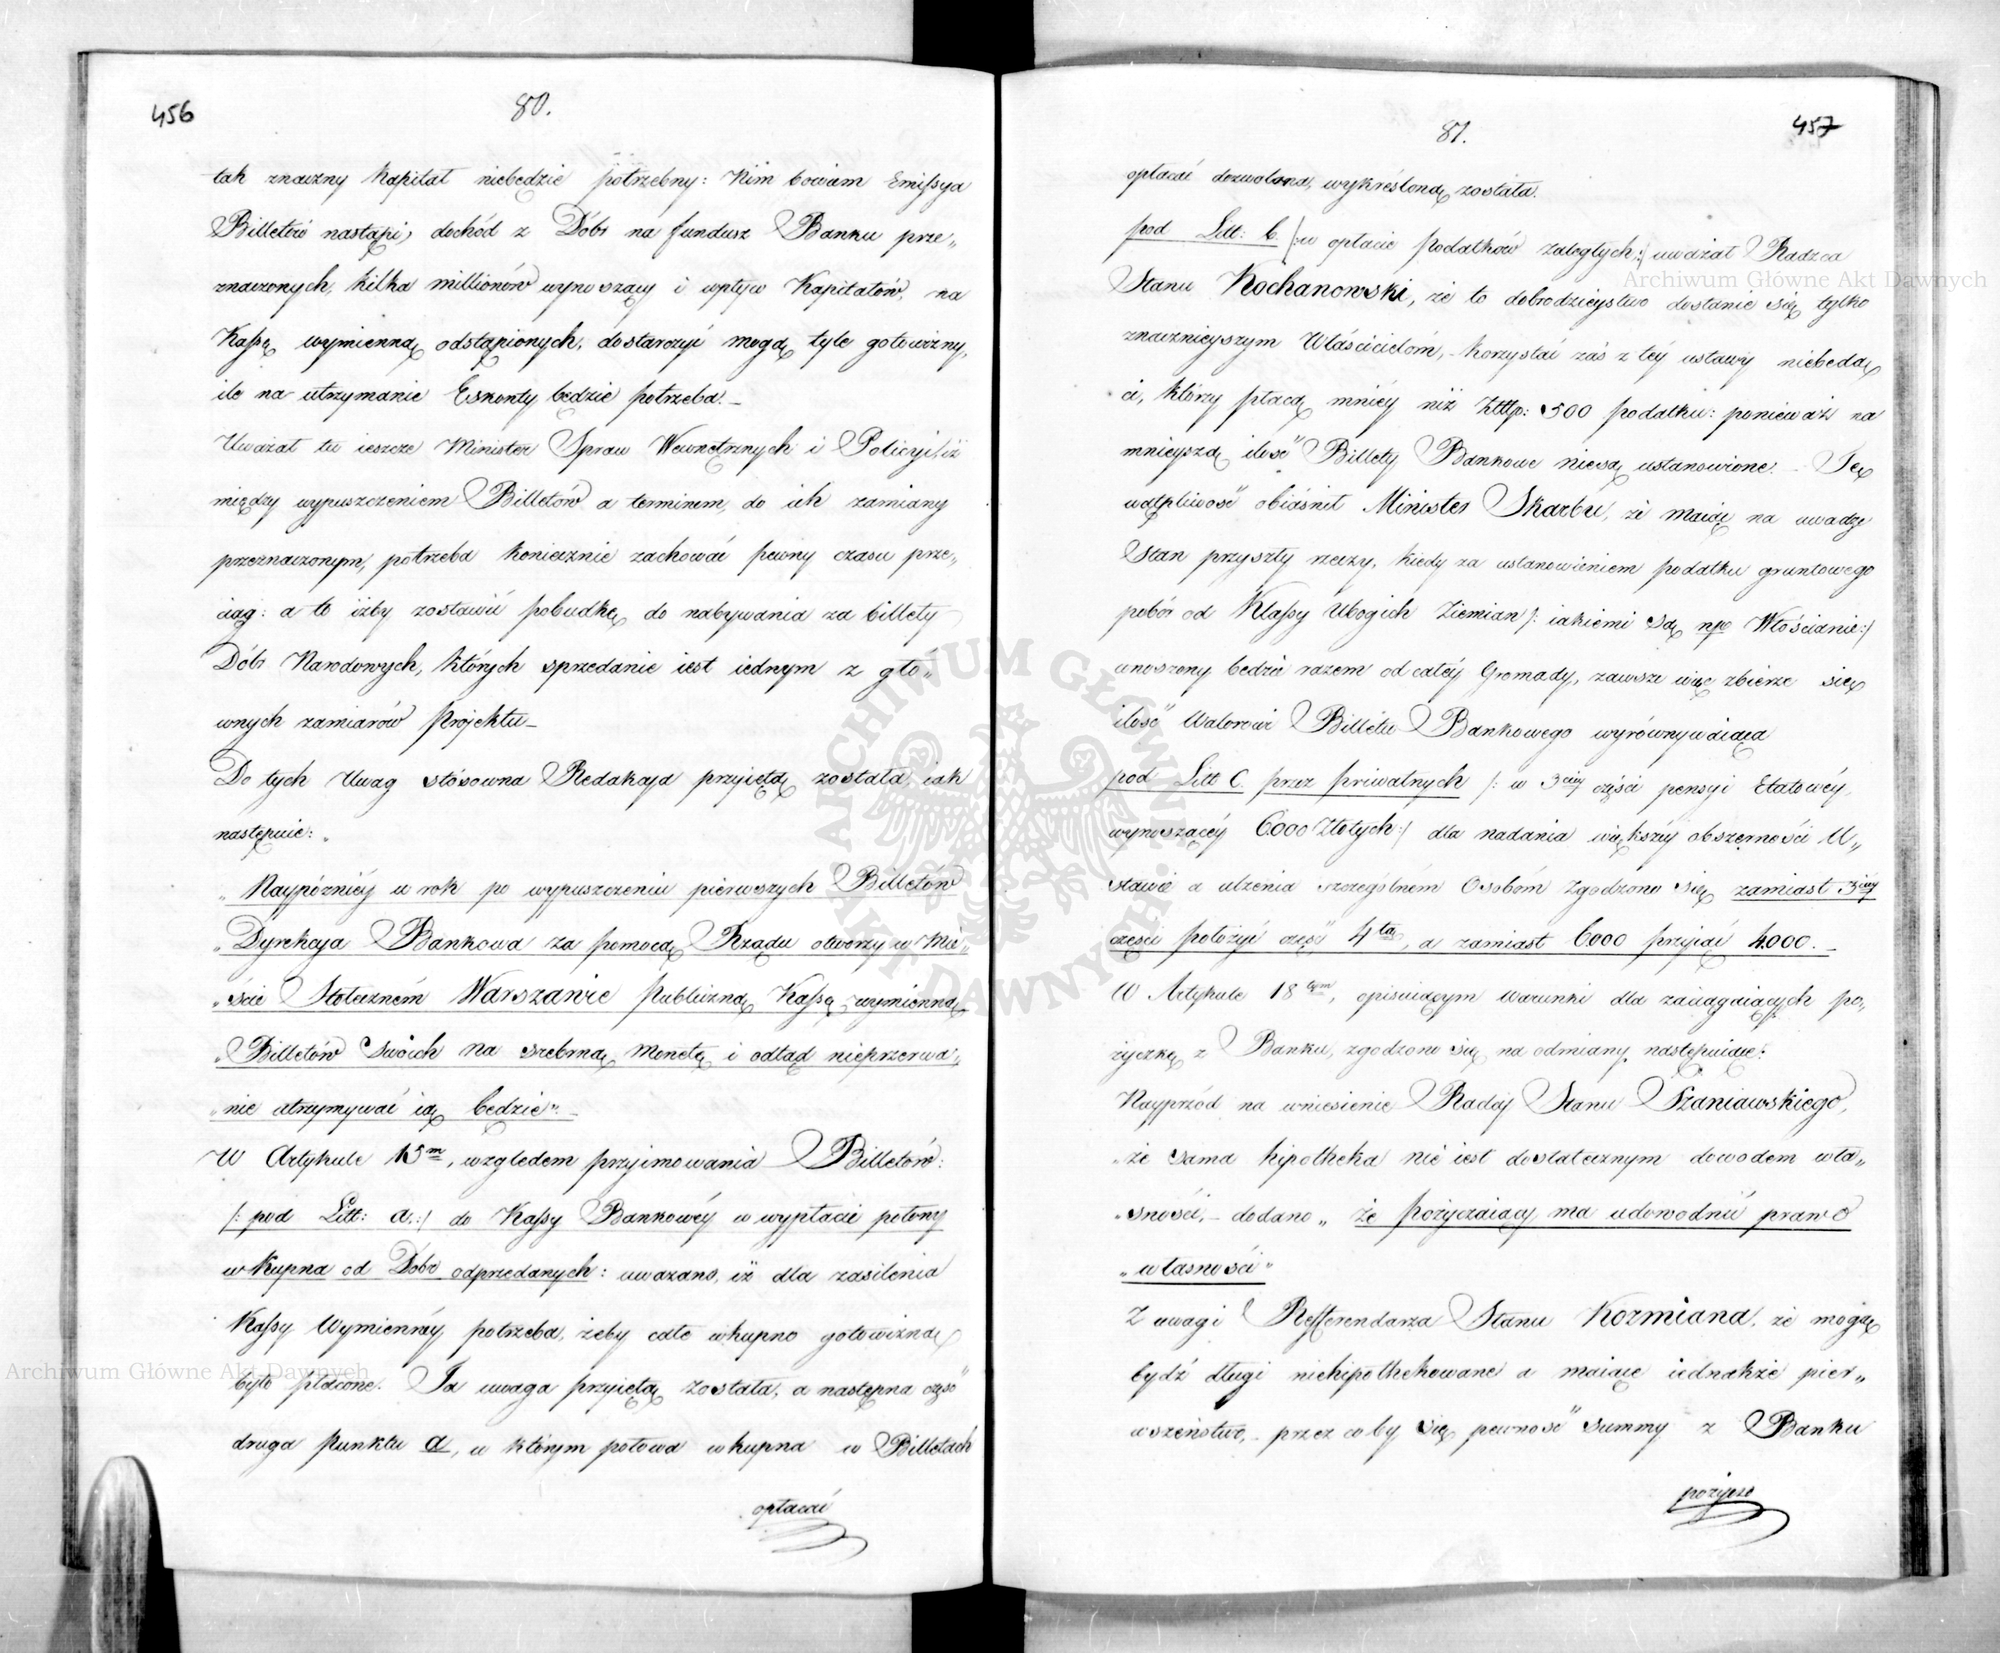 456
80.
tak znaczny Kapitał niebędzie potrzebny: Nim bowiam Emissya
Billetów nastąpi, dochód z Dóbr na fundusz Banku prze„
znaczonych, kilka millionów wynoszący i wpływ Kapitałów, na
Kassę wymienną odstąpionych, dostarczyć mogą tyle gotowizny,
ile na utrzymanie Eskonty będzie potrzeba. —
Uważał tu ieszcze Minister Spraw Wewnętrznych i Policyi, iż
między wypuszczeniem Billetów a terminem, do ich zamiany
przeznaczonym, potrzeba koniecznie zachować pewny czasu prze„
ciąg: a to iżby zostawić pobudkę do nabywania za billety
Dóbr Narodowych, których sprzedanie iest iednym z głó„
wnych zamiarów Projektu —
Do tych Uwag stósowna Redakcja przyiętą została, iak
następuie:
„Naypózniéy w rok po wypuszczeniu pierwszych Billetów
„Dyrekcja Bankowa za pomocą Rządu otworzy w Mie„
„ście Stołeczném Warszawie Publiczną Kassę wymienną
„Billetów swoich na srebrną Monetę i odtąd nieprzerwa„
„nie utrzymywać ią będzie". —
W Artykule 15m, względem przyimowania Billetów:
/: pod Litt: a.:/ do Kassy Bankowéy w wypłacie połowy
wkupna od Dóbr odprzedanych: uwazano, iż dla zasilenia
Kassy Wymiennéy potrzeba, żeby całe wkupno gotowizną
było płacone. Ta uwaga przyiętą została, a następna część
druga Punktu a, w którym połowa wkupna w Billetach
opłacać
457
81.
opłacać dozwolona, wykreśloną została.
pod Litt: b. /:w opłacie podatków zaległych:/ uważał Radzca
Stanu Kochanowski, że to dobrodzieystwo dostanie się tylko
znacznieyszym Właścicielóm, – korzystać zaś z téy ustawy niebędą
ci, którzy płacą mniéy niż Złtp: 500 podatku: ponieważ na
mnieyszą ilość Billety Bankowe niesą ustanowione. – Tę
wątpliwość obiaśnił Minister Skarbu, że maiąc na uwadze
Stan przyszły rzeczy, kiedy za ustanowieniem podatku gruntowego
pobór od Klassy Ubogich Ziemian /: iakiemi są npo Włościanie:/
wnoszony będzie razem od całéy Gromady, zawsze więc zbierze się
ilość Walorowi Billetu Bankowego wyrównywaiąca
pod Litt C. przez priwatnych /: w 3ciéy części pensyi Etatowéy,
wynoszącéy 6000 Złotych:/ dla nadania większéy obszerności U„
stawie a ulżenia szczególném Osobóm Zgodzono się zamiast 3ciéy
części położyć część 4tą, a zamiast 6000 przyiąć 4000. —
W Artykule 18tym, opisuiącym Warunki dla zaciągaiących po„
życzkę z Banku, zgodzono się na odmiany następuiące:
Nayprzód na wniesienie Radcy Stanu Szaniawskiego,
„że sama hipotheka nie iest dostatecznym dowodem wła„
„sności, – dodano „że pożyczaiący ma udowodnić prawo
„własności"
Z uwagi Refferendarza Stanu Kozmiana, że mogą
bydź długi niehipothekowane a maiące iednakże pier„
wszeństwo, – przez coby się pewność summy z Banku
pożyczo
Archiwum Główne Akt Dawnych
Archiwum Główne Akt Dawnych
ARCHIWUM GŁÓWNE AKT DAWNYCH